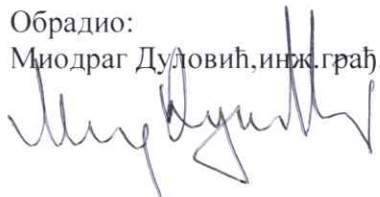 Обрадио:
Миодраг Дуловић,инж.грађ.